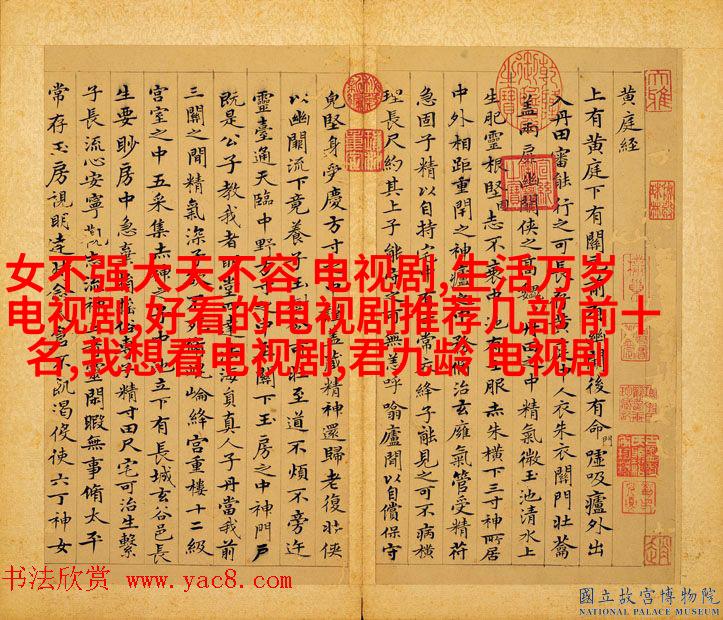 黄庭經
上有黄庭下有關元前有幽關後有命門噓吸廬外出
入丹田審能行之可長存黄庭中人衣朱衣關門壯蘥
蓋兩扉幽關俠之高巍丹田之中精氣微玉池清水上
生肥靈根堅志不衰中池有士服赤朱横下三寸神所居
中外相距重閇之神廬之中務脩治玄癕氣管受精符
急固子精以自持宅中有士常衣絳子能見之可不病横
理長尺約其上子能守之可無恙呼噏廬閒以自償保守
皃堅身受慶方寸之中謹蓋藏精神還歸老復壯俠
以幽關流下竟養子玉樹令可壯至道不煩不旁迕
靈臺通天臨中野方寸之中至關下玉房之中神門户
既是公子教我者明堂四達法海員真人子丹當我前
三關之間精氣深子欲不死脩崐崘絳宫重樓十二級
宫室之中五采集赤神之子中池立下有長城玄谷邑長
生要眇房中急棄捐淫俗專子精寸田尺宅可治生繫
子長流心安寧觀志流神三奇靈閒暇無事脩太平
常存玉房視明達時念大倉不飢渴役使六丁神女
女不强大天不容 电视剧,生活万岁
电视剧,好看的电视剧推荐几部 前十
名,我想看电视剧,君九龄 电视剧
书法欣赏 www.yac8.com
國立故宮博物院
NATIONAL PALACE MUSEUM